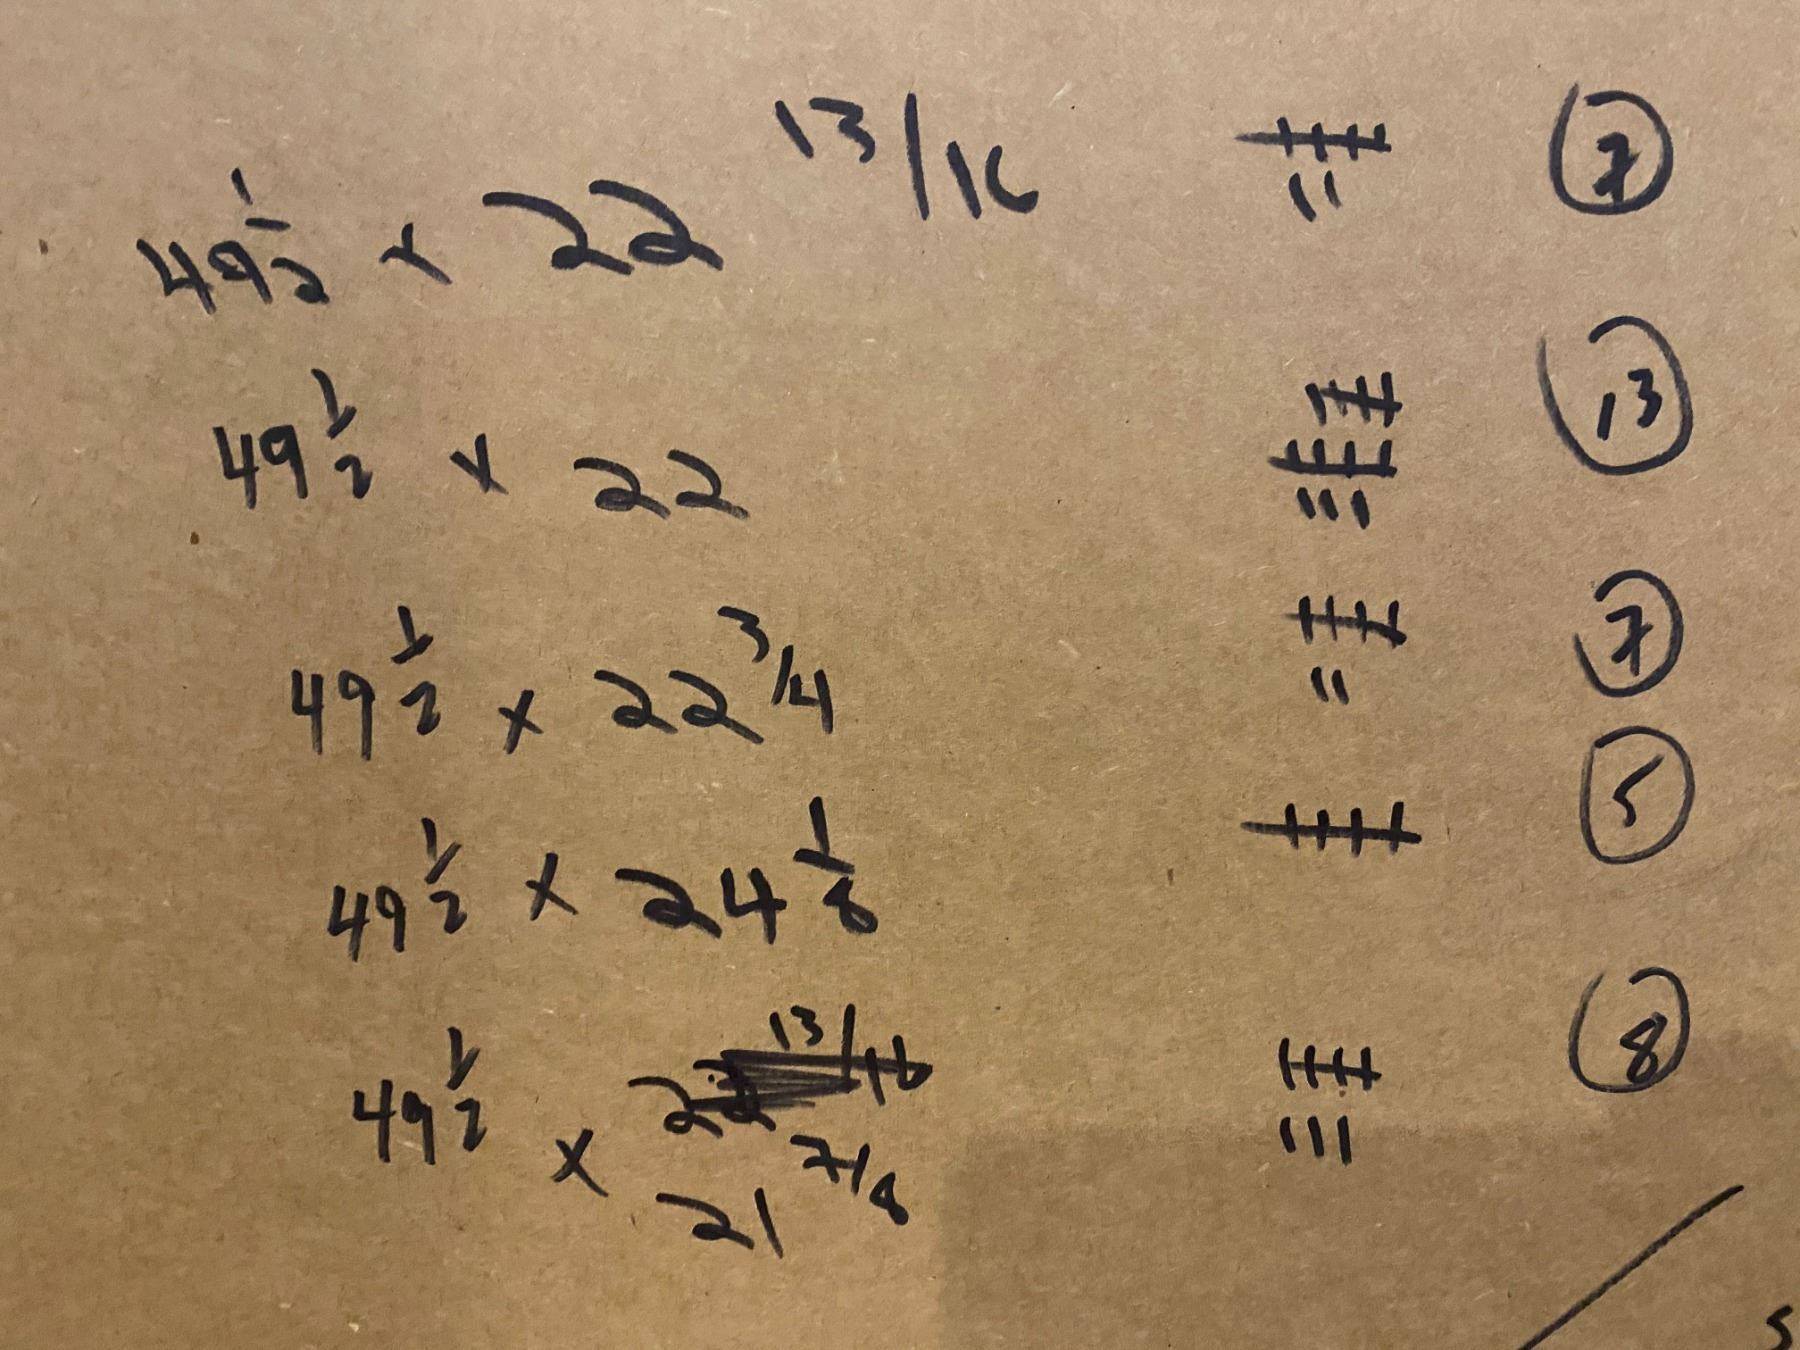 49 1/2 x 22 13/16 𝍸 || 7
49 1/2 x 22 𝍸 𝍸 ||| 13
49 1/2 x 22 3/4 𝍸 || 7
49 1/2 x 24 1/8 𝍸 5
49 1/2 x 22 13/16 𝍸 ||| 8
21 7/8